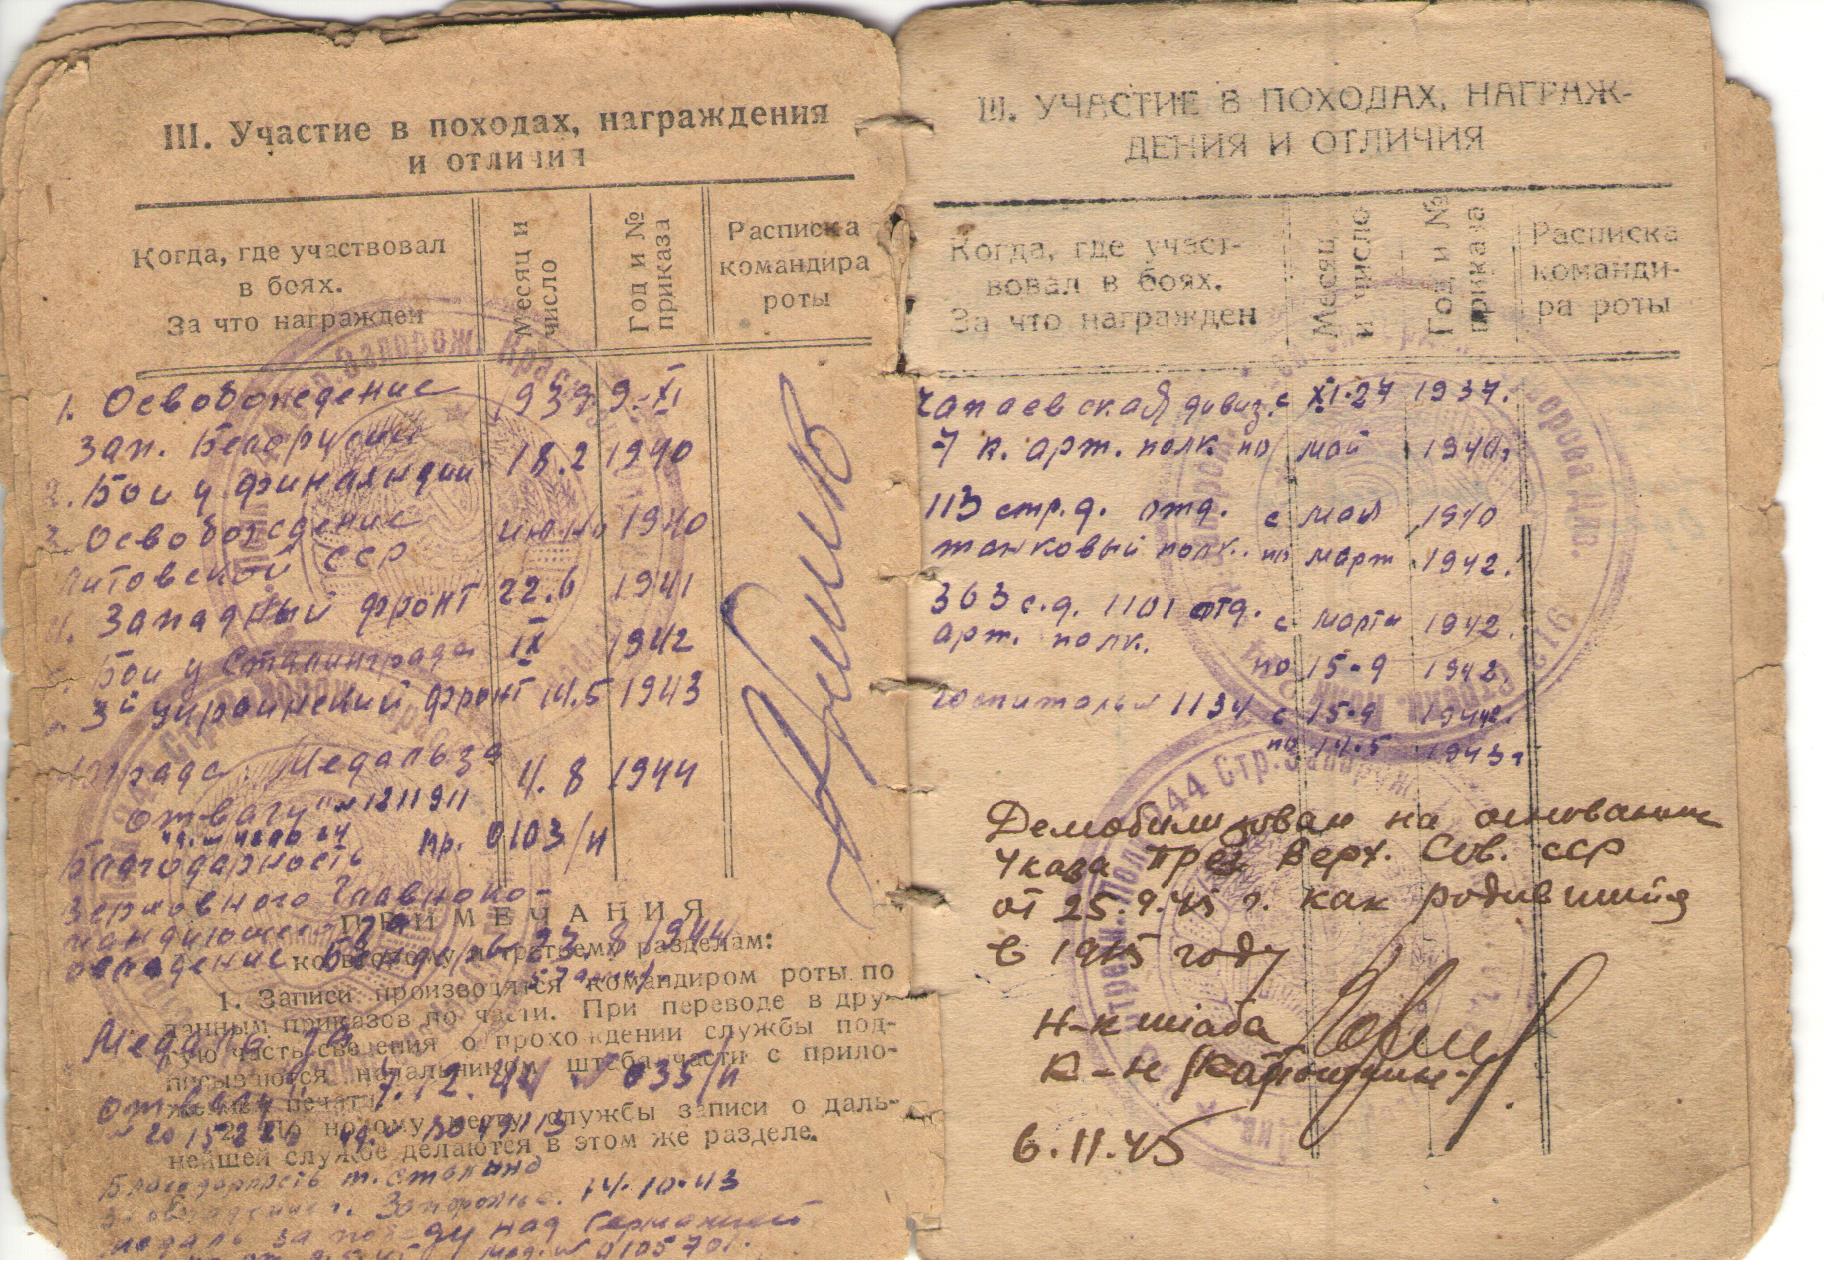 III. Участие в походах, награждения
и отличия
Когда, где участвовал
в боях.
За что награжден
Месяц и
число
Год и №
приказа
Расписка
командира
роты
1. Освобождение 1939 9.XI
Зап. Белорусии
2. Бои у финляндии 18.2 1940
3. Освобождение июнь 1940
Литовской ССР
4. Западный фронт 22.6 1941
Бои у Сталинграда IX 1942
3й украинский фронт 14.5 1943
Награда Медаль за 4.8 1944
отвагу" № 1211911
пр. 0103/н
Благодарность
Верховного Главноко-
мандующего за
овладение Бендеры 23.8 1944
ПРИМЕЧАНИЯ
ко второму и третьему разделам:
1. Записи производятся командиром роты по
данным приказов по части. При переводе в дру-
гую часть сведения о прохождении службы под-
писываются начальником штаба части с прило-
жением печати.
2. По новому месту службы записи о даль-
нейшей службе делаются в этом же разделе.
Медаль за
отвагу 7.12.44 035/н
Благодарность т. Сталина
за овладение г. Запорожье. 14.10.43
медаль за победу над Германией
от 9.5.45 мед. № 0105701.
III. УЧАСТИЕ В ПОХОДАХ, НАГРАЖ-
ДЕНИЯ И ОТЛИЧИЯ
Когда, где участ-
вовал в боях.
За что награжден
Месяц
и число
Год и №
приказа
Расписка
команди-
ра роты
Чапаевская дивиз. с XI.27 1937.
7 к. арт. полк. по май 1940.
113 стр.д. отд. с мая 1940
танковый полк. по март 1942.
303 с.д. 1101 отд. с марта 1942.
арт. полк.
по 15-9 1942.
Госпиталь № 1134 с 15-9 1942.
по 14.5 1943г
Демобилизован на основании
Указа През. Верх. Сов. ССР
от 25.9.45 г. как родившийся
в 1915 году
Н-к штаба
К-н
6.11.45